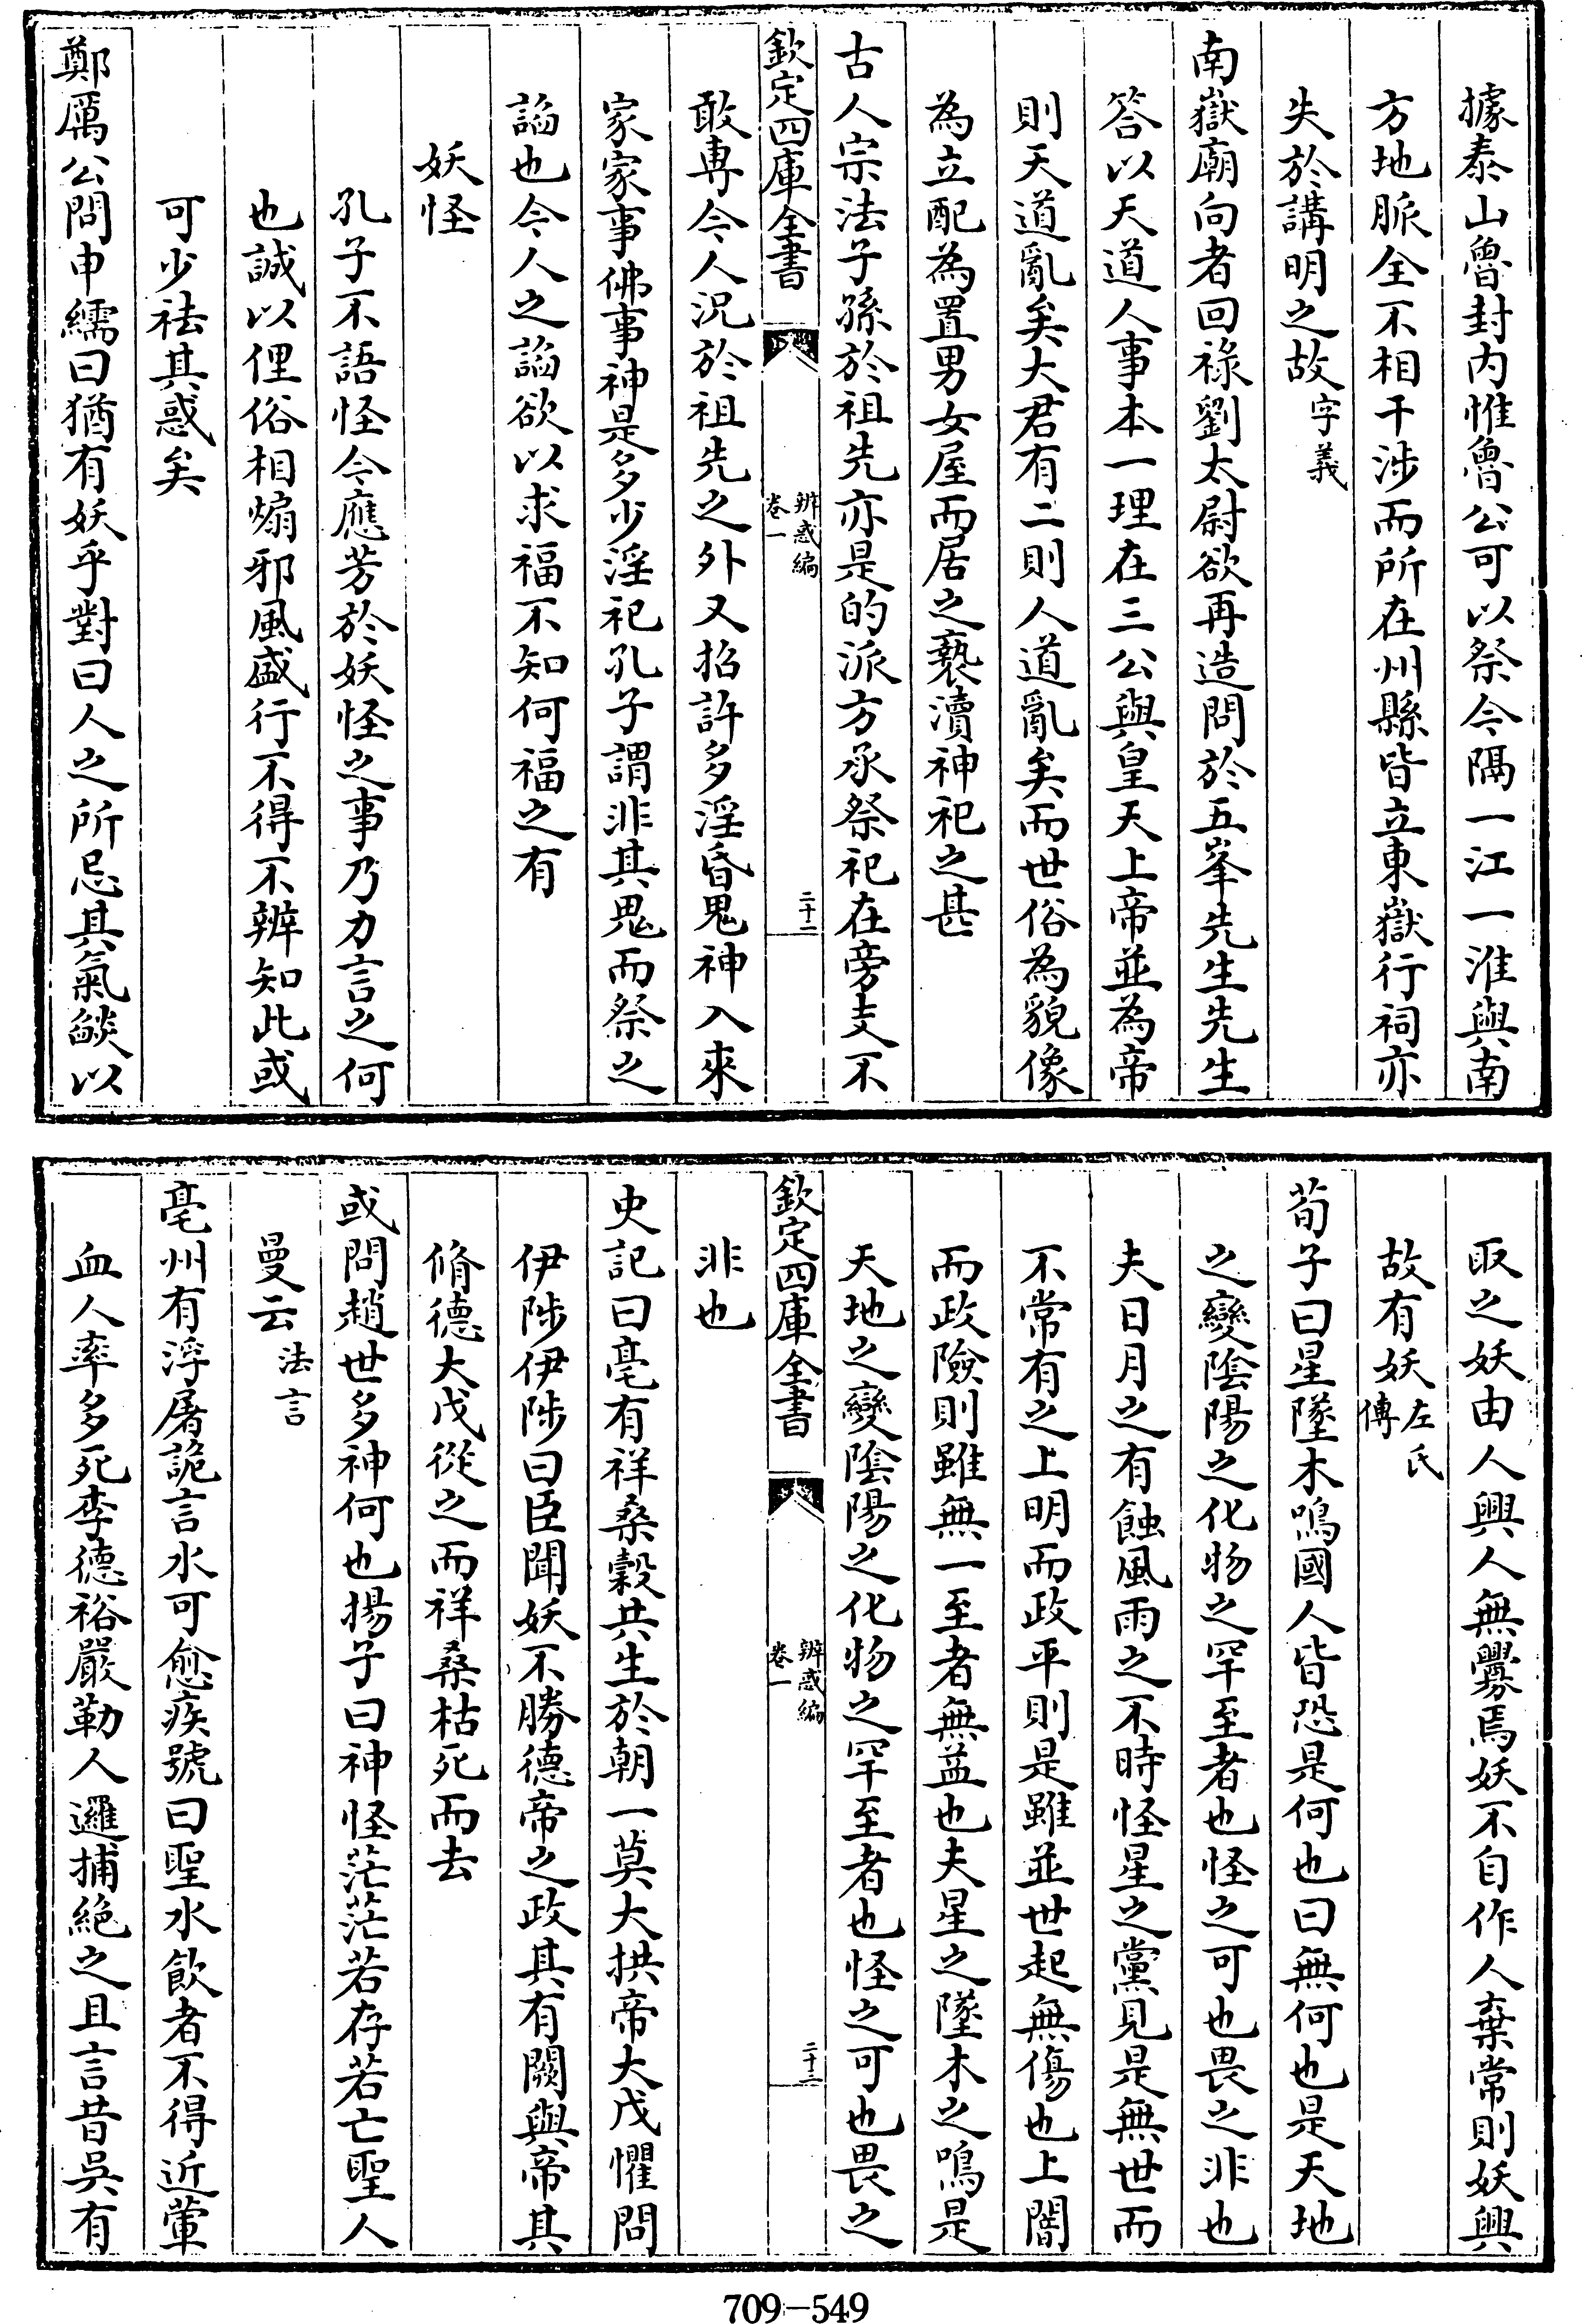 據泰山魯封内惟魯公可以祭今隔一江一淮與南
方地脈全不相干涉而所在州縣皆立東嶽行祠亦
失於講明之故字義
南嶽廟向者回祿劉太尉欲再造問於五峯先生先生
答以天道人事本一理在三公與皇天上帝並為帝
則天道亂矣大君有二則人道亂矣而世俗為貌像
為立配為置男女屋而居之褻瀆神祀之甚
古人宗法子孫於祖先亦是的派方承祭祀在旁支不
欽定四庫全書
辨惑編
卷一
二十二
敢専今人況於祖先之外又招許多淫昏鬼神入來
家家事佛事神是多少淫祀孔子謂非其鬼而祭之
諂也今人之諂欲以求福不知何福之有
妖怪
孔子不語怪今應芳於妖怪之事乃力言之何
也誠以俚俗相煽邪風盛行不得不辨知此或
可少祛其惑矣
鄭厲公問申繻曰猶有妖乎對曰人之所忌其氣燄以
取之妖由人興人無釁焉妖不自作人棄常則妖興
故有妖左氏傳
荀子曰星墜木鳴國人皆恐是何也曰無何也是天地
之變隂陽之化物之罕至者也怪之可也畏之非也
夫日月之有蝕風雨之不時怪星之黨見是無世而
不常有之上明而政平則是雖並世起無傷也上闇
而政險則雖無一至者無益也夫星之墜木之鳴是
天地之變隂陽之化物之罕至者也怪之可也畏之
欽定四庫全書
辨惑編
卷一
二十三
非也
史記曰亳有祥桑榖共生於朝一莫大拱帝大戊懼問
伊陟伊陟曰臣聞妖不勝德帝之政其有闕與帝其
脩德大戊從之而祥桑枯死而去
或問趙世多神何也揚子曰神怪茫茫若存若亡聖人
曼云法言
亳州有浮屠詭言水可愈疾號曰聖水飲者不得近葷
血人率多死李德裕嚴勒人邏捕絶之且言昔吳有
709-549